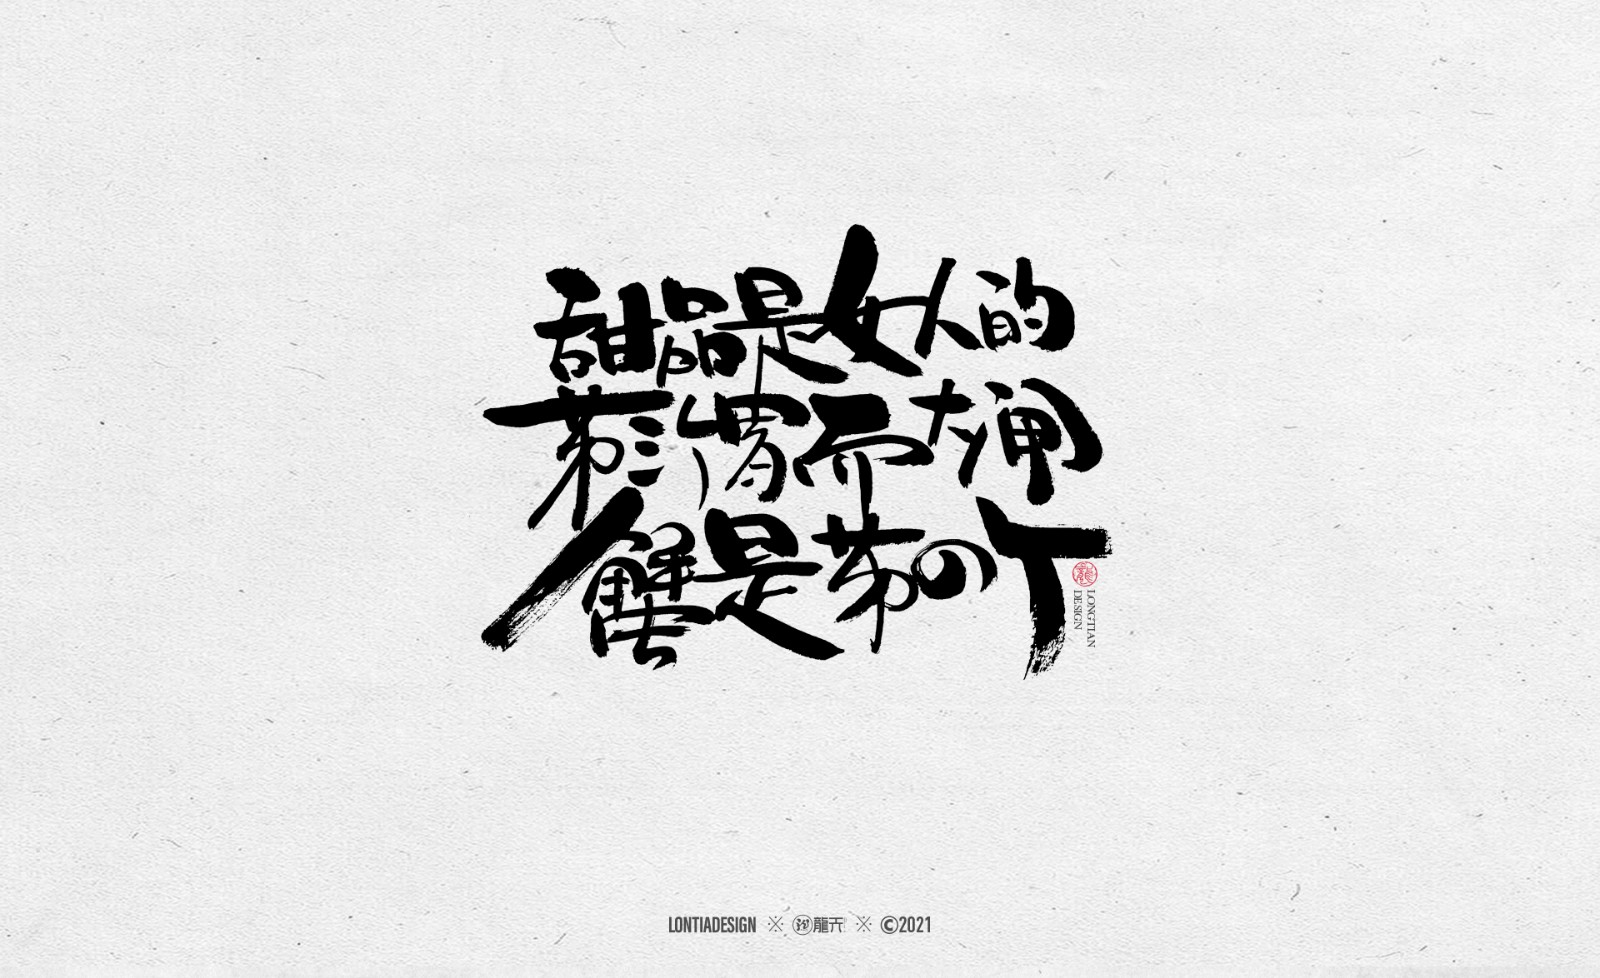 甜品是女人的
第三个胃而大闸
蟹是第四个
龍
LONGTIAN
DESIGN
LONTIADESIGN ※ 龍天 ※ ©2021